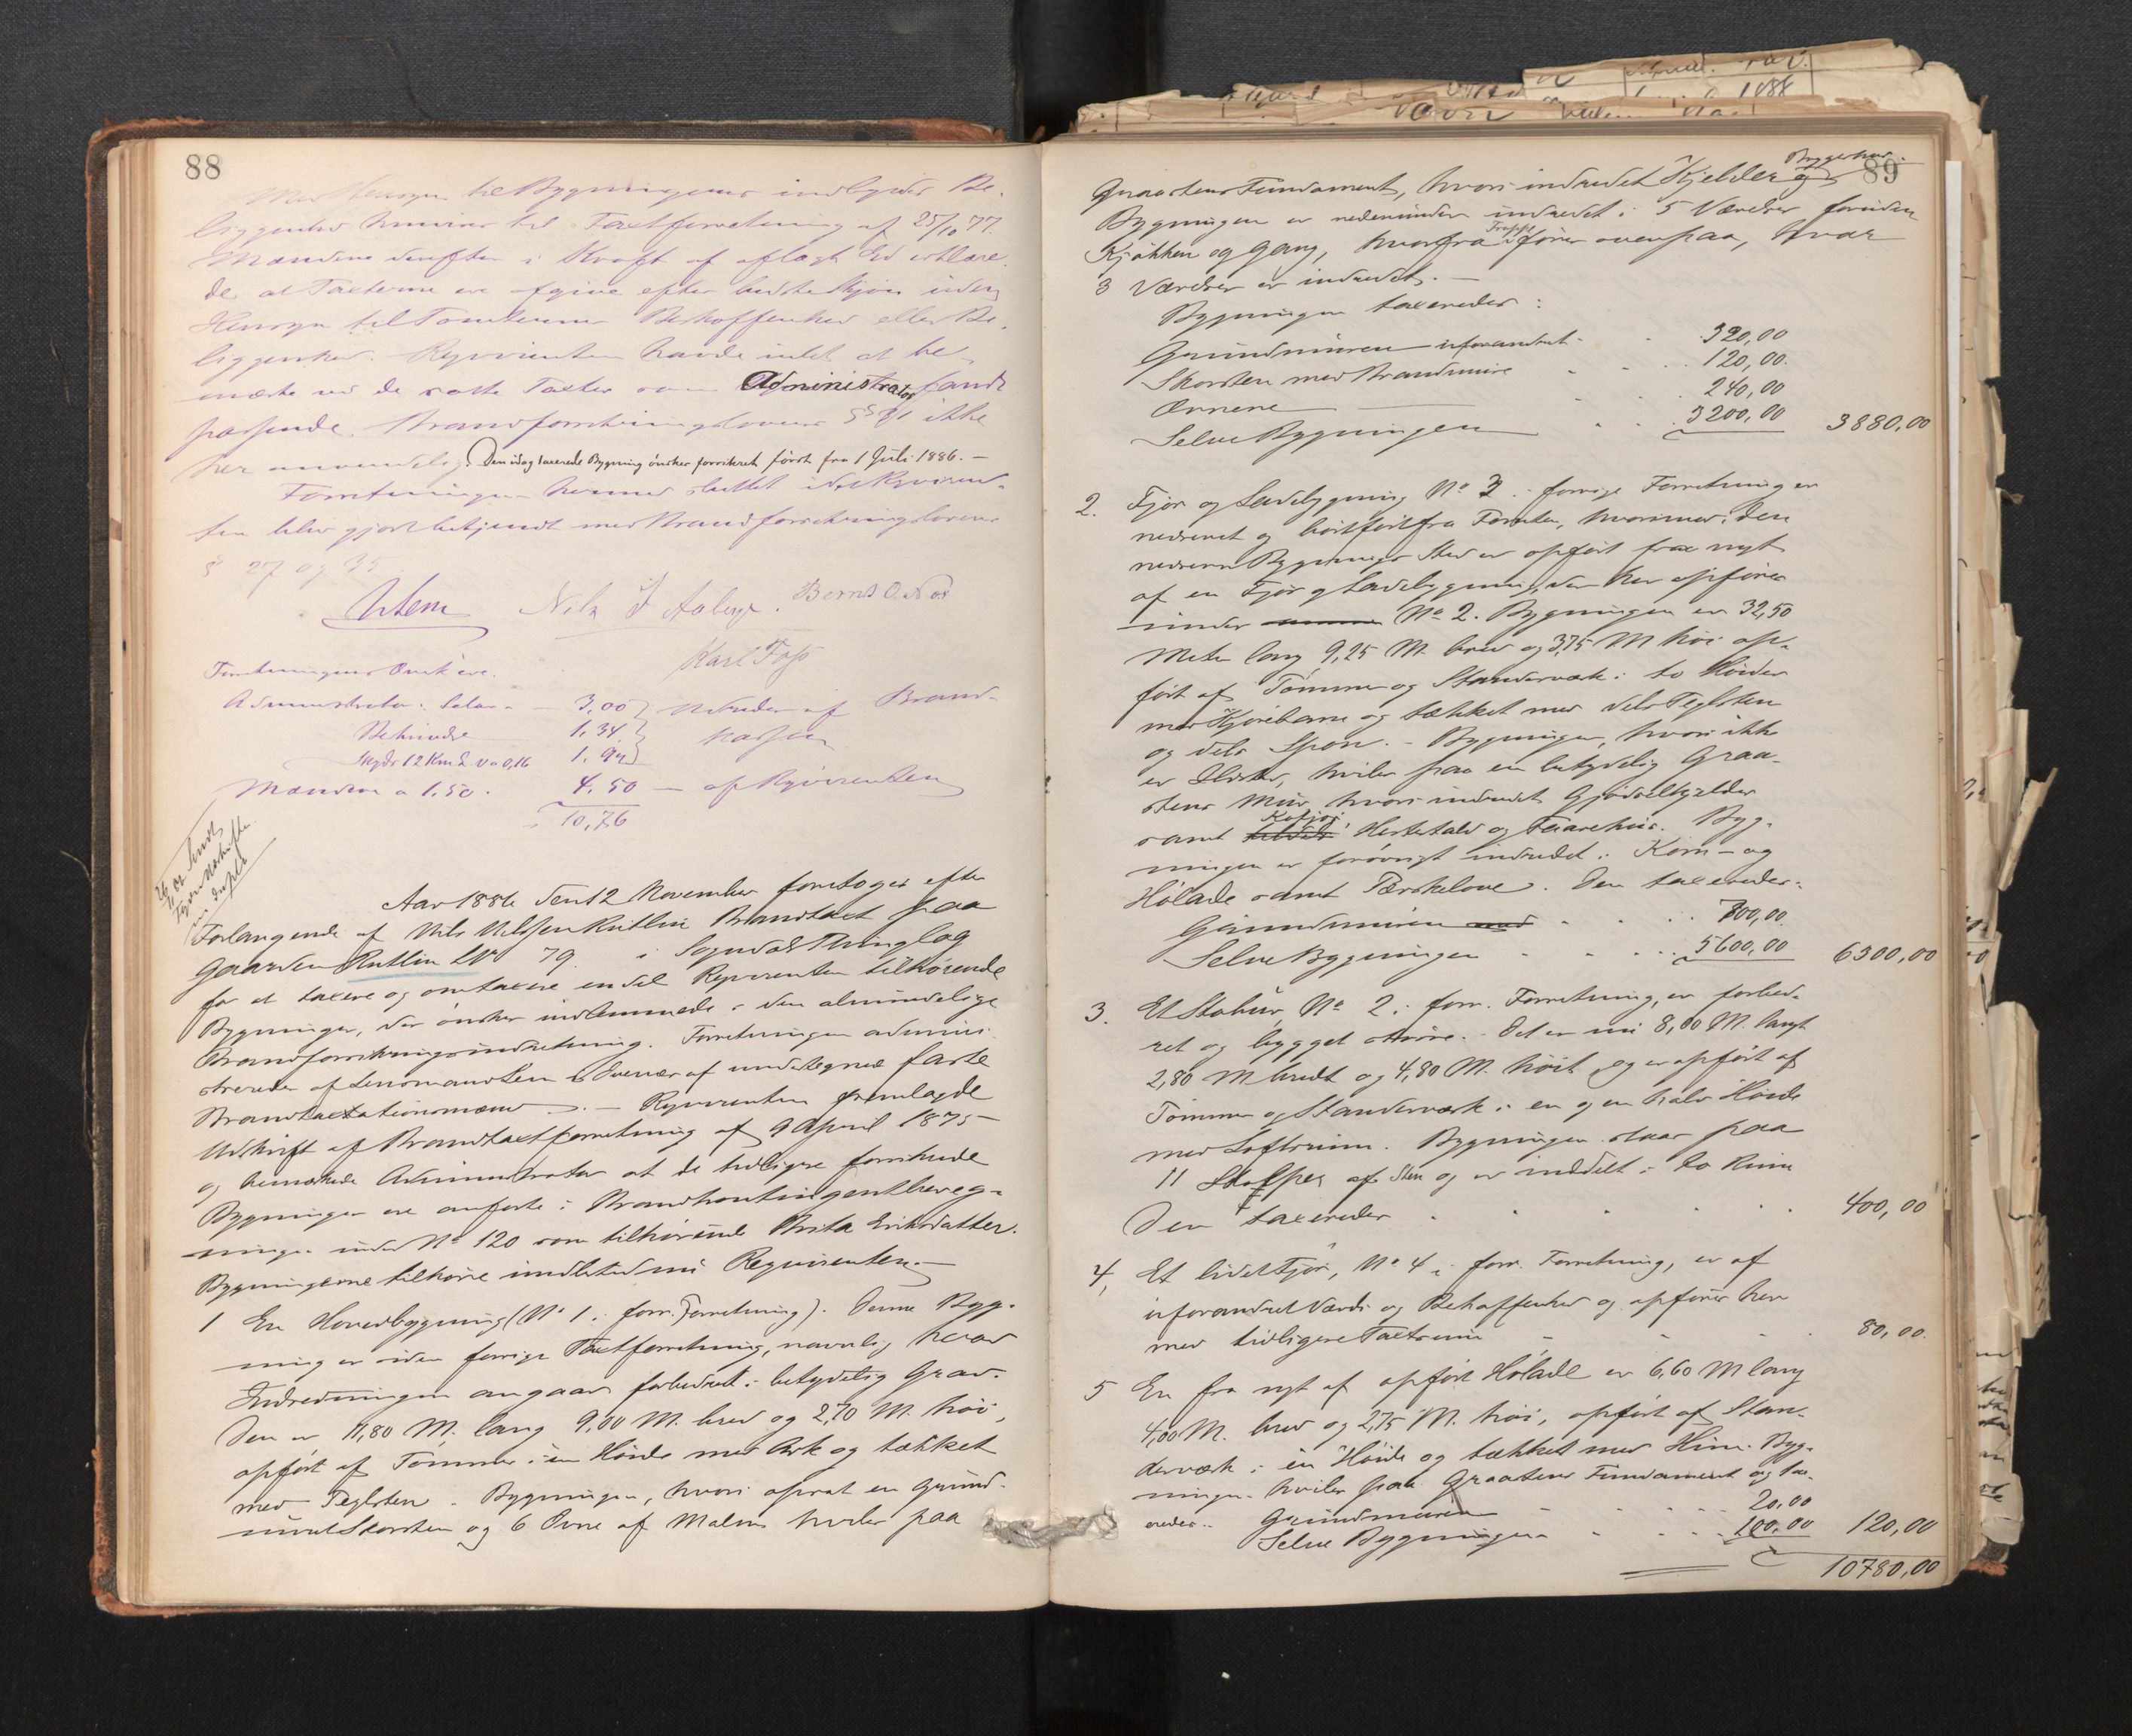 88
Med Hensyn til Bygningens indbyrdes Be-
liggenhed henvises til Taxtforretning af 25/10 77.
Mændene derefter i Kraft af aflagt Ed erklære-
de at Taxterne ere afgivne efter bedste Skjøn uden
Hensyn til Tomternes Beskaffenhed eller Be-
liggenhed. Reqvirenten havde intet at be-
mærke ved de satte Taxter som Administrator fandt
passende. Brandforsikringslovens § 31 ikke
her anvendelig. Den idag taxerede Bygning ønskes forsikret først fra 1 Juli 1886. —
Forretningen hermed sluttet idet Reqviren-
ten blev gjort bekjendt med Brandforsikringslovens
§ 27 og 35
Nils J Aaberge. Bernt O. Nos
Karl Foss
Forretningens Omk ere.
Administrator: Salær - 3,00 } udredes af Brand-
1,34 } kassen
Skyds 12 Km à 0,16 1,92 }
Mændene a 1,50. 4,50 — af Reqvirenten
10,76
Aar 1886 den 12 November foretoges efter
Forlangende af Nils Nilssen Rutlin Brandtaxt paa
Gaarden Rutlin LNo 79 i Sogndals Thinglag
for at taxere og omtaxere endel Reqvirenten tilhørende
Bygninger, der ønskes indlemmede i den almindelige
Brandforsikringsindretning. Forretningen admini-
streredes af Lensmanden i Overvær af undertegnede faste
Brandtaxtationsmænd. — Reqvirenten fremlagde
Udskrift af Brandtaxtforretning af 9 April 1875
og bemærkede Administrator at de tidligere forsikrede
Bygninger ere anførte i Brandkontingentbereg-
ningen under No 120 som tilhørende Brita Eriksdatter.
Bygningerne tilhøre imidlertid nu Reqvirenten. —
1 En Hovedbygning (No 1 i forr. Forretning). Denne Byg-
ning er siden forrige Taxtforretning, navnlig hvad
Indredningen angaar forbedret i betydelig Grad.
Den er 11,80 M. lang 9,00 M. bred og 2,70 M. høi,
opført af Tømmer i en Høide med Ark og tækket
med Teglsten. Bygningen, hvori opsat en grund-
muret Skorsten og 6 Ovne af Malm hviler paa
89
Graastens Fundament, hvori indredet Kjelder og Bryggerhus.
Bygningen er nedenunder indredet i 5 Værelser foruden
Kjøkken og Gang, hvorfra Trappe fører ovenpaa, hvor
3 Værelser er indredet. —
Bygningen taxeredes:
Grundmuren uforandret - 320,00
Skorsten med Brandmure 120,00.
Ovnene 240,00
Selve Bygningen 3200,00 3880,00
2. Fjøs og Ladebygning No 3 i forrige Forretning er
nedrevet og bortført fra Tomten, hvorimod i den
nedrevne Bygnings Sted er opført fra nyt
af en Fjøs og Ladebygning, der her opføres
under No 2. Bygningen er 32,50
Meter lang 9,25 M. bred og 3,75 M høi op-
ført af Tømmer og Standerværk i to Høider
med Kjørebane og tækket med dels Teglsten
og dels Spon. - Bygningen, hvori ikke
er Ildsted, hviler paa en betydelig Graa-
stens Mur, hvori indredet Gjødselkjelder
samt Kofjøs, Hestestald og Faarehus. Byg-
ningen er forøvrigt indredet i Korn- og
Hølade samt Tærskelove. Den taxeredes:
Grundmuren 700,00.
Selve Bygningen 5600,00 6300,00
3. Et Stabur, No 2 i forr. Forretning, er forbed-
ret og bygget større. Det er nu 8,00 M. langt
2,80 M bredt og 4,80 M. høit og er opført af
Tømmer og Standerværk i en og en halv Høide
med Loftsrum. Bygningen staar paa
11 Stolper af Sten og er inddelt i to Rum
Den taxeredes 400,00
4, Et lidet Fjøs, No 4 i forr. Forretning, er af
uforandret Værdi og Beskaffenhed og opføres her
med tidligere Taxtsum 80,00.
5 En fra nyt af opført Hølade er 6,60 M lang
4,00 M. bred og 2,75 M. høi, opført af Stan-
derværk i en Høide og tækket med Him. Byg-
ningen hviler paa Graastens Fundament og tax-
eredes. Grundmuren 20,00
Selve Bygningen 100,00 120,00
10780,00